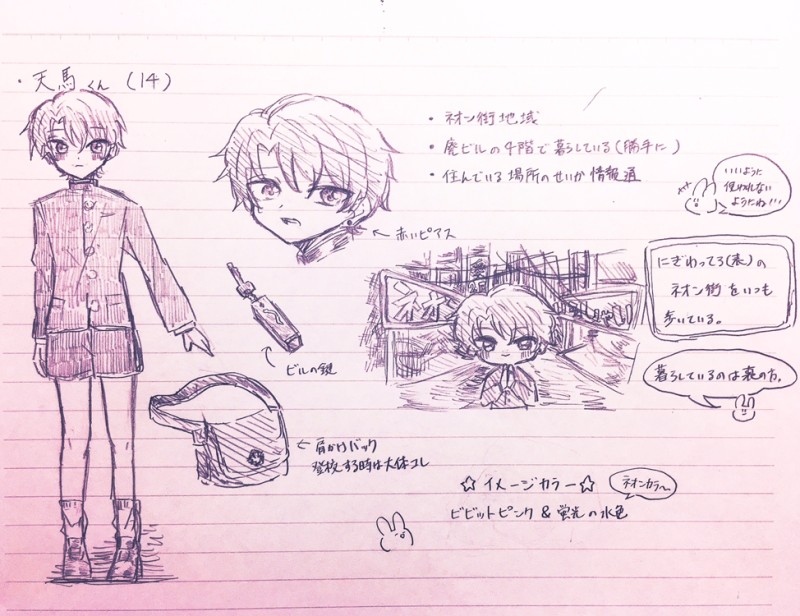 ・天馬くん (14)
・ネオン街地域
・廃ビルの4階で暮らしている(勝手に)
・住んでいる場所のせいか情報通
いいように
使われない
ようにね!!!
←赤いピアス
にぎわってる(表)の
ネオン街をいつも
歩いている。
ネオ
ビルの鍵
暮らしているのは裏の方。
←肩かけバック
登校する時は大体コレ
☆イメージカラー☆
ネオンカラ〜
ビビットピンク&蛍光の水色